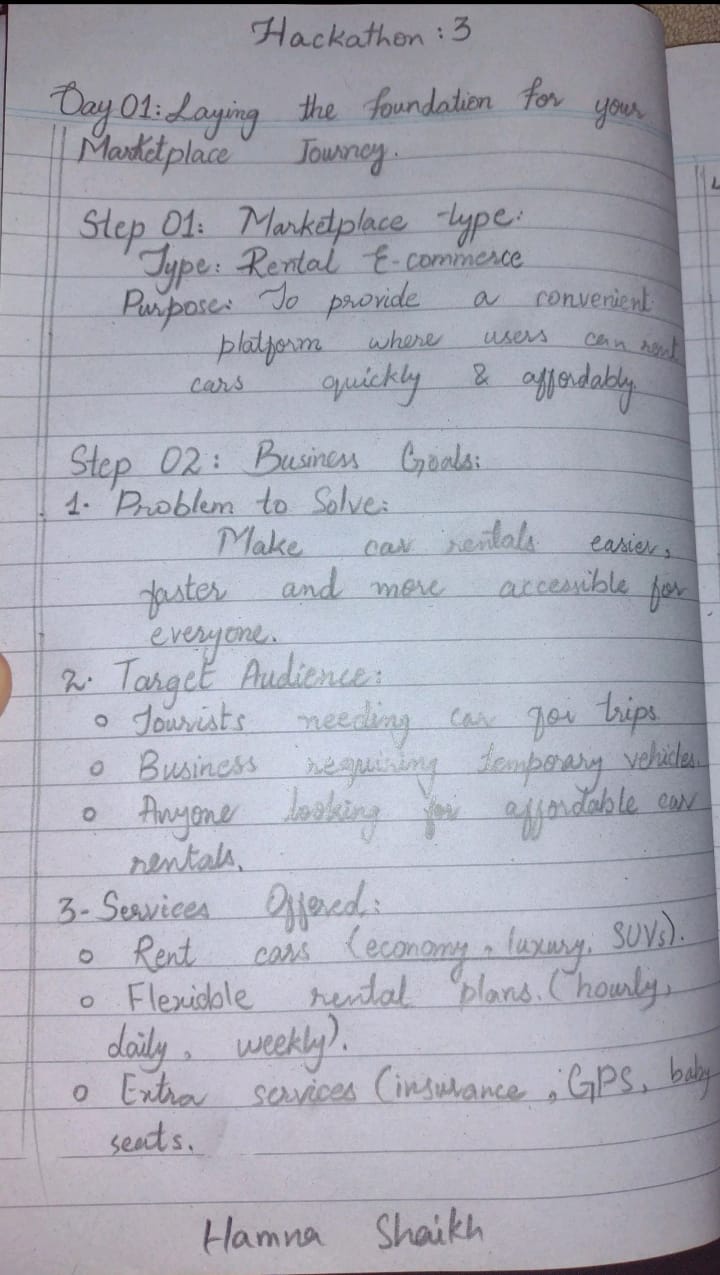 Hackathon : 3
Day 01: Laying the foundation for your
Marketplace Journey.
Step 01: Marketplace type:
Type: Rental E-commerce
Purpose: To provide a convenient
platform where users can rent
cars quickly & affordably.
Step 02: Business Goals:
1. Problem to Solve:
Make car rentals easier,
faster and more accessible for
everyone.
2. Target Audience:
o Tourists needing car for trips.
o Business requiring temporary vehicles.
o Anyone looking for affordable car
rentals.
3- Services Offered:
o Rent cars (economy, luxury, SUVs).
o Flexible rental plans. (hourly,
daily, weekly).
o Extra services (insurance, GPS, baby
seats.
Hamna Shaikh